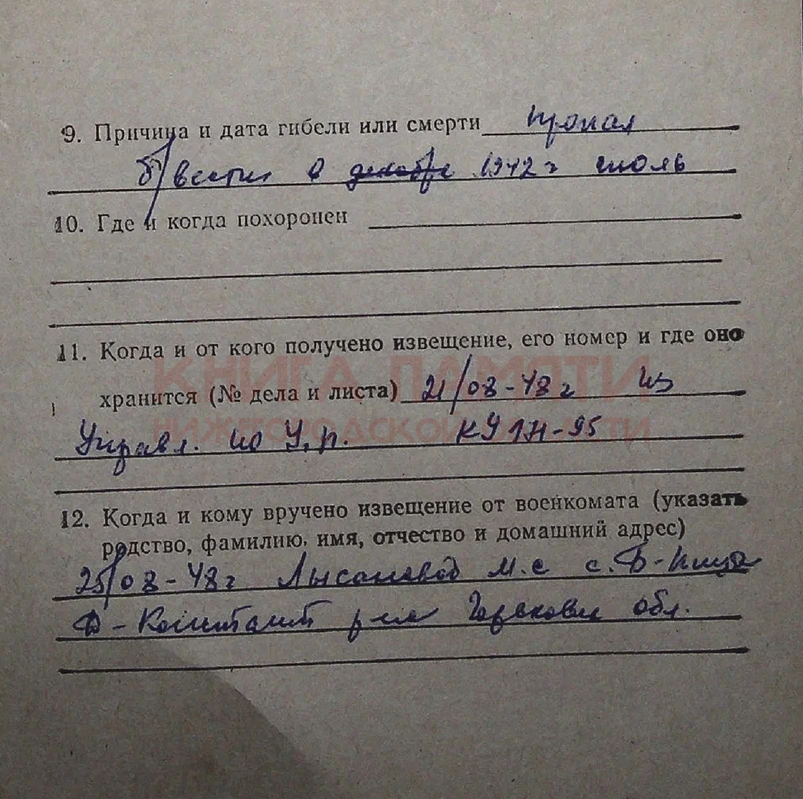 9. Причина и дата гибели или смерти пропал
б/вести в декабре 1942 г июль
10. Где и когда похоронен
11. Когда и от кого получено извещение, его номер и где оно
хранится (№ дела и листа) 21/08-48 г из
КНИГА ПАМЯТИ
Управл. по У.р.
НИЖЕГОРОДСКОЙ ОБЛАСТИ
12. Когда и кому вручено извещение от военкомата (указать
родство, фамилию, имя, отчество и домашний адрес)
25/08-48 г Лысановой М.С с.
Д-Констант р-на Горьковск обл.